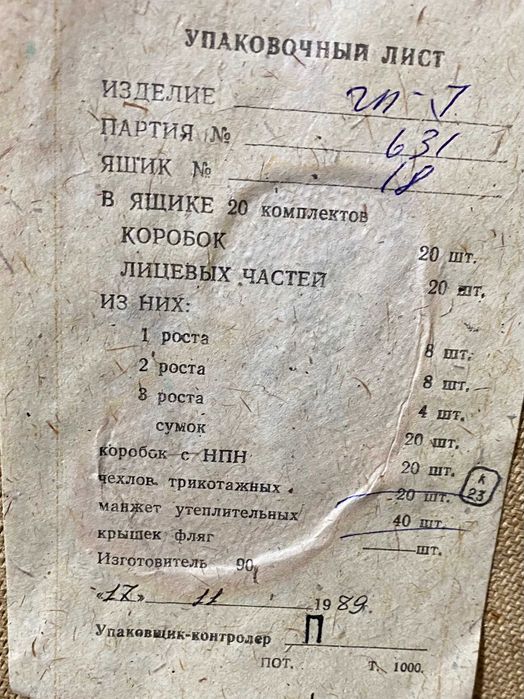 УПАКОВОЧНЫЙ ЛИСТ
ИЗДЕЛИЕ
ПАРТИЯ № 631
ЯЩИК № 18
В ЯЩИКЕ 20 комплектов
КОРОБОК 20 шт.
ЛИЦЕВЫХ ЧАСТЕЙ 20 шт.
ИЗ НИХ:
1 роста 8 шт.
2 роста 8 шт.
3 роста 4 шт.
сумок 20 шт.
коробок с НПН 20 шт.
чехлов трикотажных 20 шт.
К
23
манжет утеплительных 40 шт.
крышек фляг шт.
Изготовитель 90
«17» 11 1989.
Упаковщик-контролер П
ПОТ. Т. 1000.